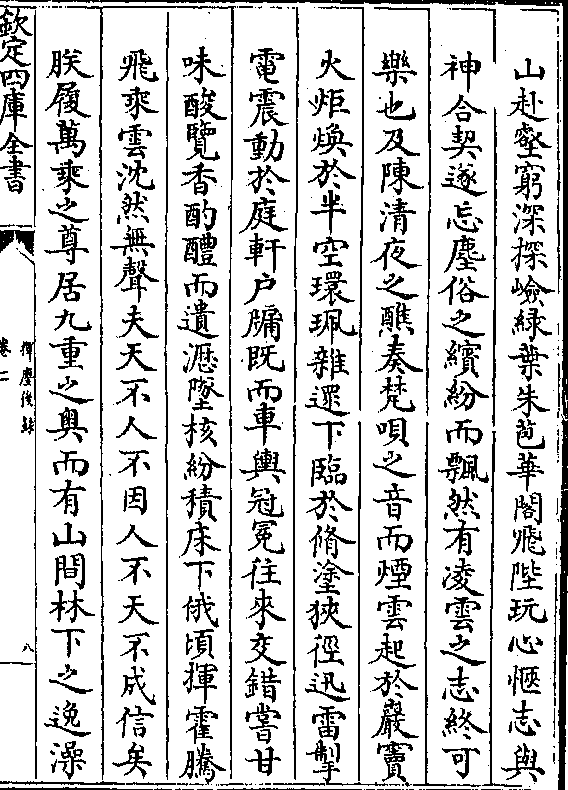 山赴壑窮深探嶮綠葉朱苞華閣飛陛玩心愜志與
神合契遂忘塵俗之繽紛而飄然有凌雲之志終可
樂也及陳清夜之醮奏梵唄之音而煙雲起於巖竇
火炬煥於半空環珮雜還下臨於脩塗狹徑迅雷掣
電震動於庭軒戶牖既而車輿冠冕往來交錯嘗甘
味酸覽香酌醴而遺瀝墜核紛積床下俄頃揮霍騰
飛乘雲沈然無聲夫天不人不因人不天不成信矣
朕履萬乘之尊居九重之奥而有山間林下之逸澡
欽定四庫全書
揮麈後錄
卷二
八